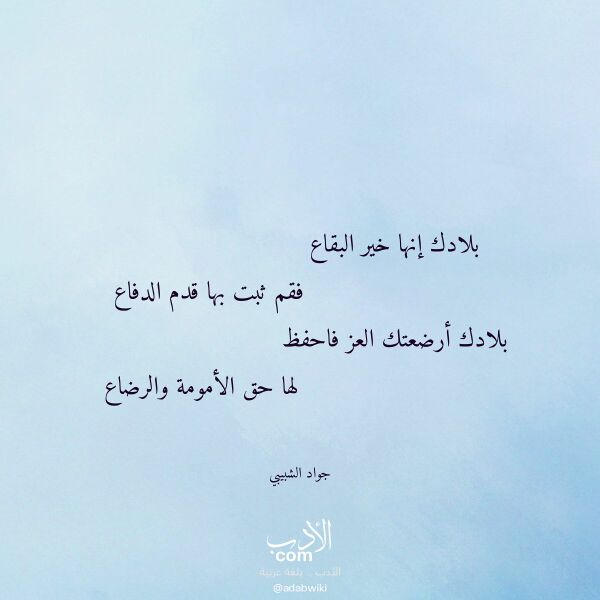 بلادك إنها خير البقاع
فقم ثبت بها قدم الدفاع
بلادك أرضعتك العز فاحفظ
لها حق الأمومة والرضاع
جواد الشبيبي
الأدب
com
الأدب .. بلغة عربية
@adabwiki